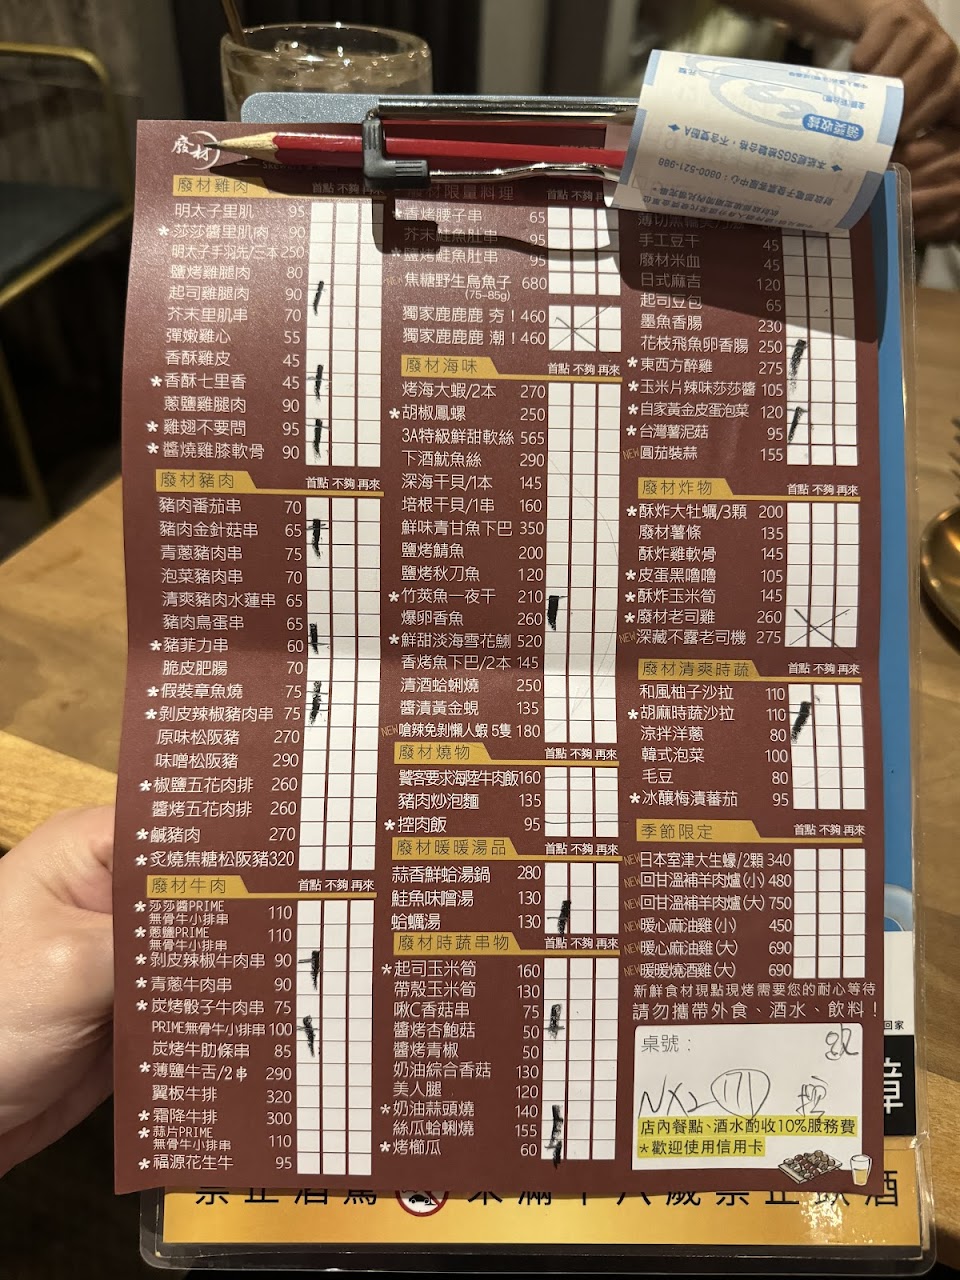 廢材
廢材雞肉 首點 不夠 再來
明太子里肌 95
*莎莎醬里肌肉 90
明太子手羽先/三本250
鹽烤雞腿肉 80
起司雞腿肉 90
芥末里肌串 70
彈嫩雞心 55
香酥雞皮 45
*香酥七里香 45
蔥鹽雞腿肉 90
*雞翅不要問 95
*醬燒雞膝軟骨 90
廢材豬肉 首點 不夠 再來
豬肉番茄串 70
豬肉金針菇串 65
青蔥豬肉串 75
泡菜豬肉串 70
清爽豬肉水蓮串 65
豬肉鳥蛋串 65
*豬菲力串 60
脆皮肥腸 70
*假裝章魚燒 75
*剝皮辣椒豬肉串 75
原味松阪豬 270
味噌松阪豬 290
*椒鹽五花肉排 260
醬烤五花肉排 260
*鹹豬肉 270
*炙燒焦糖松阪豬320
廢材牛肉 首點 不夠 再來
*莎莎醬PRIME
無骨牛小排串 110
*蔥鹽PRIME
無骨牛小排串 110
*剝皮辣椒牛肉串 90
*青蔥牛肉串 90
*炭烤骰子牛肉串 75
PRIME無骨牛小排串100
炭烤牛肋條串 85
*薄鹽牛舌/2串 290
翼板牛排 320
*霜降牛排 300
*蒜片PRIME
無骨牛小排串 110
*福源花生牛 95
廢材限量料理 首點 不夠 再來
*香烤腰子串 65
芥末鮭魚肚串 95
*鹽烤鮭魚肚串 95
焦糖野生烏魚子 680
(75-85g)
獨家鹿鹿鹿 夯!460
獨家鹿鹿鹿 潮!460
廢材海味 首點 不夠 再來
烤海大蝦/2本 270
*胡椒鳳螺 250
3A特級鮮甜軟絲 565
下酒魷魚絲 290
深海干貝/1本 145
培根干貝/1串 160
鮮味青甘魚下巴 350
鹽烤鯖魚 200
鹽烤秋刀魚 120
*竹莢魚一夜干 210
爆卵香魚 260
*鮮甜淡海雪花鯏 520
香烤魚下巴/2本 145
清酒蛤蜊燒 250
醬漬黃金蜆 135
NEW嗆辣免剝懶人蝦 5隻 180
廢材燒物 首點 不夠 再來
饕客要求海陸牛肉飯160
豬肉炒泡麵 135
*控肉飯 95
廢材暖暖湯品 首點 不夠 再來
蒜香鮮蛤湯鍋 280
鮭魚味噌湯 130
蛤蠣湯 130
廢材時蔬串物 首點 不夠 再來
*起司玉米筍 160
帶殼玉米筍 130
啾C香菇串 75
醬烤杏鮑菇 50
醬烤青椒 50
奶油綜合香菇 130
美人腿 120
*奶油蒜頭燒 140
絲瓜蛤蜊燒 155
*烤櫛瓜 60
手工豆干 45
廢材米血 45
日式麻吉 120
起司豆包 65
墨魚香腸 230
花枝飛魚卵香腸 250
*東西方醉雞 275
*玉米片辣味莎莎醬 105
*自家黃金皮蛋泡菜 120
*台灣薯泥菇 95
NEW圓茄裝蒜 155
廢材炸物 首點 不夠 再來
*酥炸大牡蠣/3顆 200
廢材薯條 135
酥炸雞軟骨 145
*皮蛋黑嚕嚕 105
*酥炸玉米筍 145
*廢材老司雞 260
NEW深藏不露老司機 275
廢材清爽時蔬 首點 不夠 再來
和風柚子沙拉 110
*胡麻時蔬沙拉 110
涼拌洋蔥 80
韓式泡菜 100
毛豆 80
*冰釀梅漬番茄 95
季節限定 首點 不夠 再來
NEW日本室津大生蠔/2顆 340
NEW回甘溫補羊肉爐(小) 480
NEW回甘溫補羊肉爐(大) 750
NEW暖心麻油雞(小) 450
NEW暖心麻油雞(大) 690
NEW暖暖燒酒雞(大) 690
新鮮食材現點現烤需要您的耐心等待
請勿攜帶外食、酒水、飲料!
桌號:
NX2 171
店內餐點、酒水酌收10%服務費
*歡迎使用信用卡
回家
章
禁止酒駕 未滿十八歲禁止飲酒